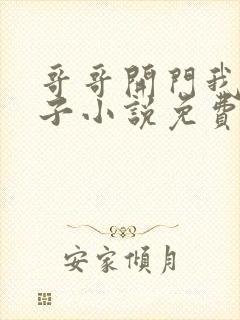 哥哥開門我
子小說免費
安家傾月